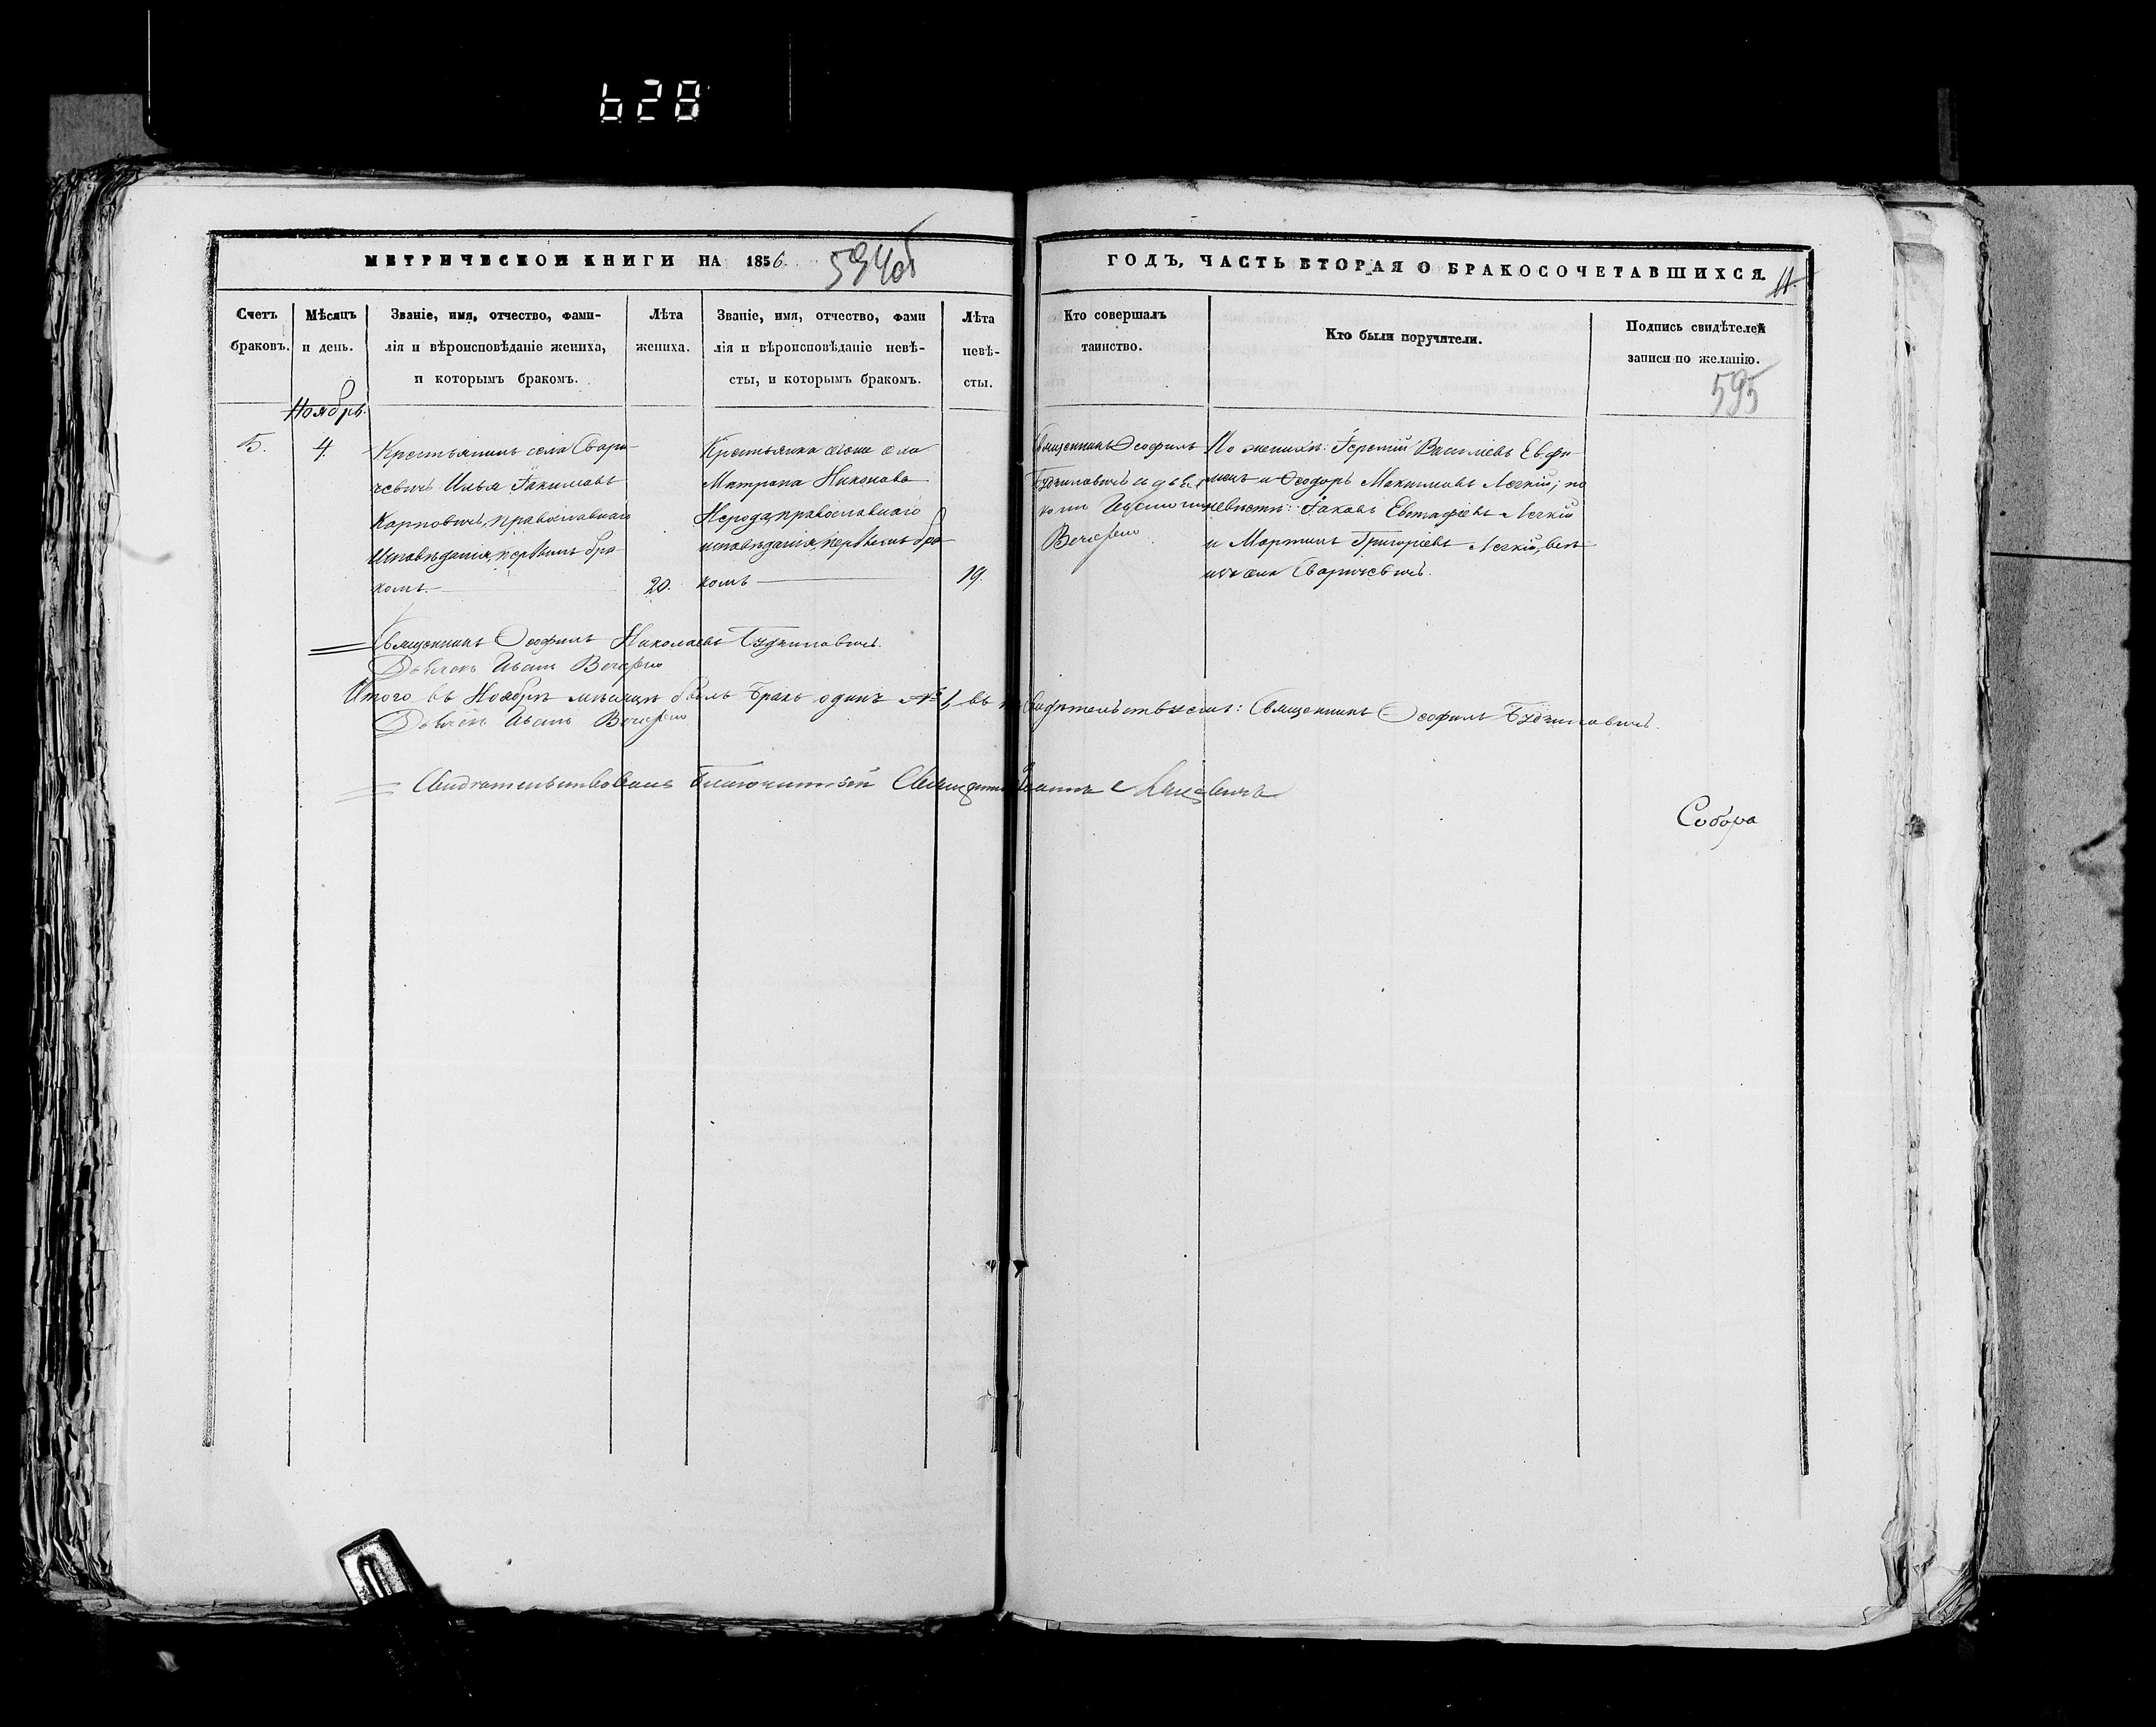 628
МЕТРИЧЕСКОЙ КНИГИ НА 1856.
594об
ГОДЪ, ЧАСТЬ ВТОРАЯ О БРАКОСОЧЕТАВШИХСЯ.
11.
Счетъ
браковъ.
Мѣсяцъ
и день.
Званіе, имя, отчество, фами-
лія и вѣроисповѣданіе жениха,
и которымъ бракомъ.
Лѣта
жениха.
Званіе, имя, отчество, фами
лія и вѣроисповѣданіе невѣ-
сты, и которымъ бракомъ.
Лѣта
невѣ-
сты.
Кто совершалъ
таинство.
Кто были поручители.
Подпись свидѣтелей
записи по желанію.
595
Ноябрь.
5.
4.
Крестьянинъ села Свари-
чевичъ Илья Іакимовъ
Карповичъ, православнаго
исповѣданія, первымъ бра-
комъ.
20.
Крестьянка села
Матрона Никонова
Нерода, православнаго
исповѣданія, первымъ бра-
комъ
19.
Священникъ Ѳеофилъ
Будзиловичъ и дьяч
комъ
Вечерко
По женихѣ: Іеремій Василіевъ Евфи-
и Ѳеодоръ Максимовъ Легкій; по
невѣстѣ: Іаковъ Евстафіевъ Легкій
и Мартинъ Григоріевъ Легкій, всѣ
изъ села Сваричевичъ.
Священникъ Ѳеофилъ Николаевъ Будзиловичъ.
Дьячекъ Иванъ Вечерко
Итого въ Ноябрѣ мѣсяцѣ былъ бракъ одинъ № 1, въ свидѣтельствуемъ: Священникъ Ѳеофилъ Будзиловичъ.
Дьячекъ Иванъ Вечерко
Свидѣтельствовалъ Благочинный Священникъ Іоаннъ
Собора